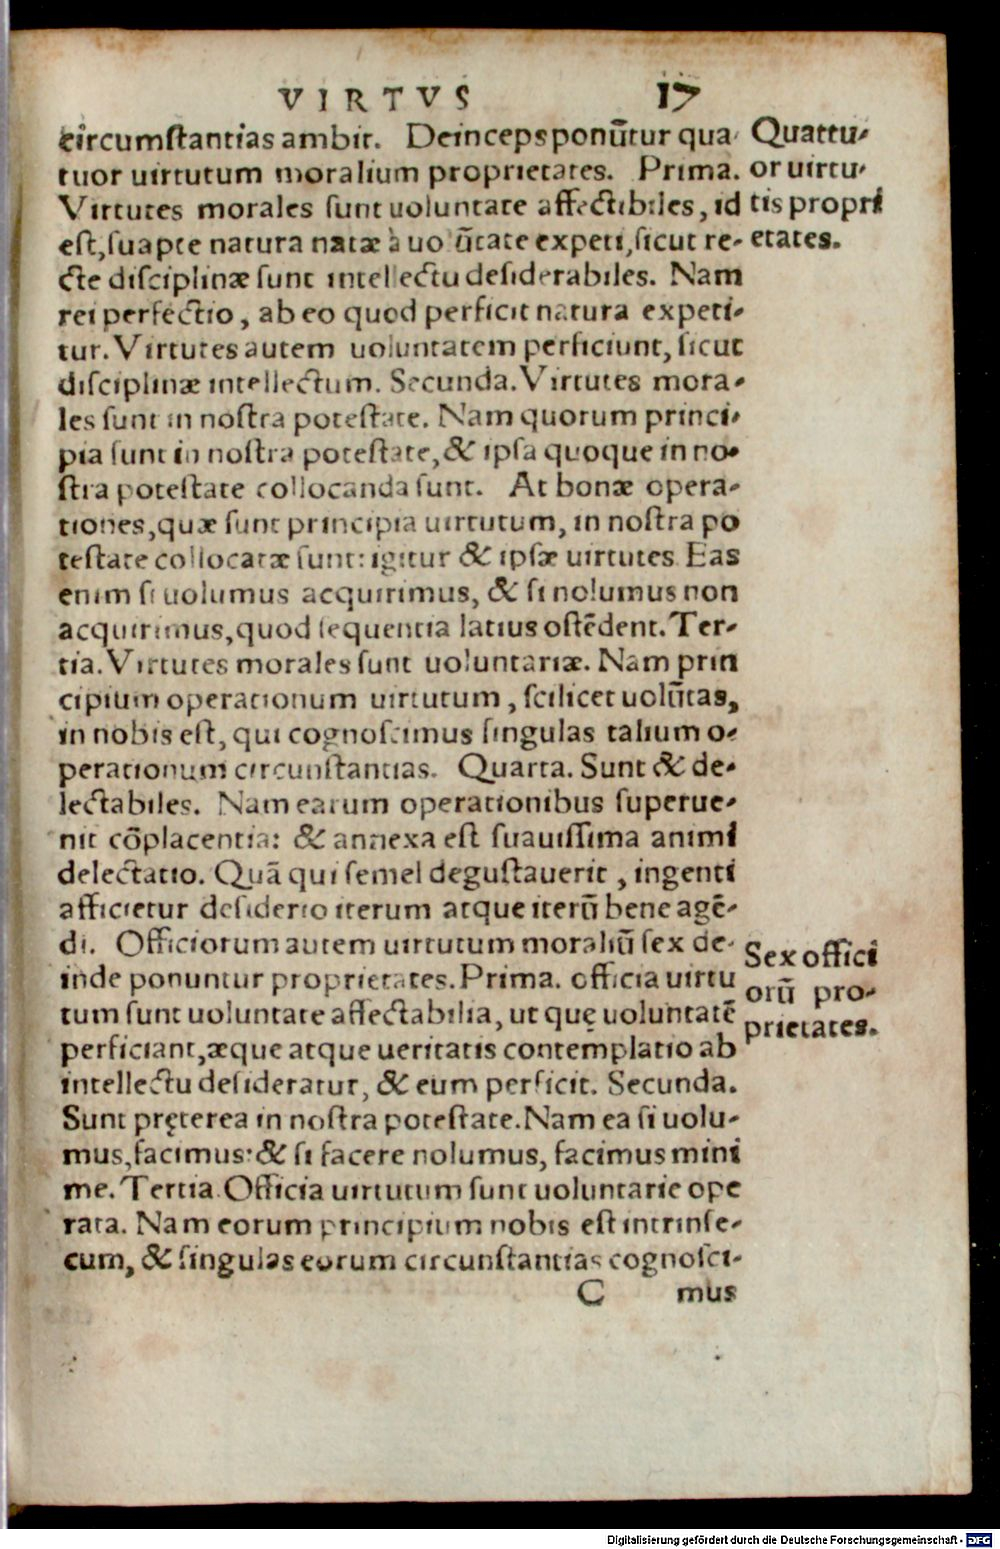 VIRTVS 17
circumstantias ambit. Deinceps ponũtur qua
tuor uirtutum moralium proprietates. Prima.
Virtutes morales sunt uoluntate affectibiles, id
est, suapte natura natæ à uolũtate expeti, sicut re-
cte disciplinæ sunt intellectu desiderabiles. Nam
rei perfectio, ab eo quod perficit natura expeti-
tur. Virtutes autem uoluntatem perficiunt, sicut
disciplinæ intellectum. Secunda. Virtutes mora-
les sunt in nostra potestate. Nam quorum princi-
pia sunt in nostra potestate, & ipsa quoque in no-
stra potestate collocanda sunt. At bonæ opera-
tiones, quæ sunt principia uirtutum, in nostra po
testate collocatæ sunt: igitur & ipsæ uirtutes. Eas
enim si uolumus acquirimus, & si nolumus non
acquirimus, quod sequentia latius ostẽdent. Ter-
tia. Virtutes morales sunt uoluntariæ. Nam prin
cipium operationum uirtutum, scilicet uolũtas,
in nobis est, qui cognoscimus singulas talium o-
perationum circunstantias. Quarta. Sunt & de-
lectabiles. Nam earum operationibus superue-
nit cõplacentia: & annexa est suauissima animi
delectatio. Quã qui semel degustauerit, ingenti
afficietur desiderio iterum atque iterũ bene agẽ-
di. Officiorum autem uirtutum moraliũ sex de-
inde ponuntur proprietates. Prima. officia uirtu
tum sunt uoluntate affectabilia, ut quę uoluntatẽ
perficiant, æque atque ueritatis contemplatio ab
intellectu desideratur, & eum perficit. Secunda.
Sunt pręterea in nostra potestate. Nam ea si uolu-
mus, facimus: & si facere nolumus, facimus mini
me. Tertia. Officia uirtutum sunt uoluntarie ope
rata. Nam eorum principium nobis est intrinse-
cum, & singulas eorum circunstantias cognosci-
C mus
Quattu-
or uirtu-
tis propri
etates.
Sex offici
orũ pro-
prietates.
Digitalisierung gefördert durch die Deutsche Forschungsgemeinschaft - DFG